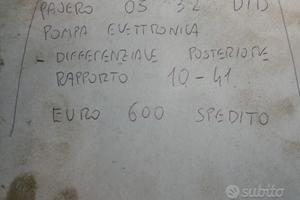 PAJERO 05 3.2 DID
POMPA ELETTRONICA
- DIFFERENZIALE POSTERIORE
RAPPORTO 10-41
EURO 600 SPEDITO
subito